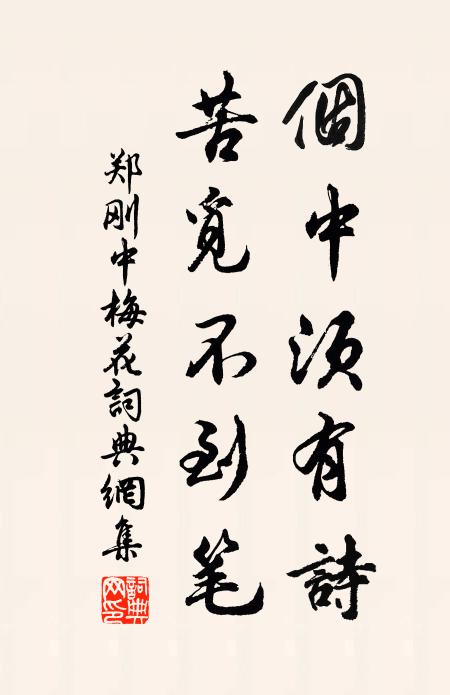 個中須有詩
苦覓不到笔
郑刚中梅花詞典網集
詞典
网印